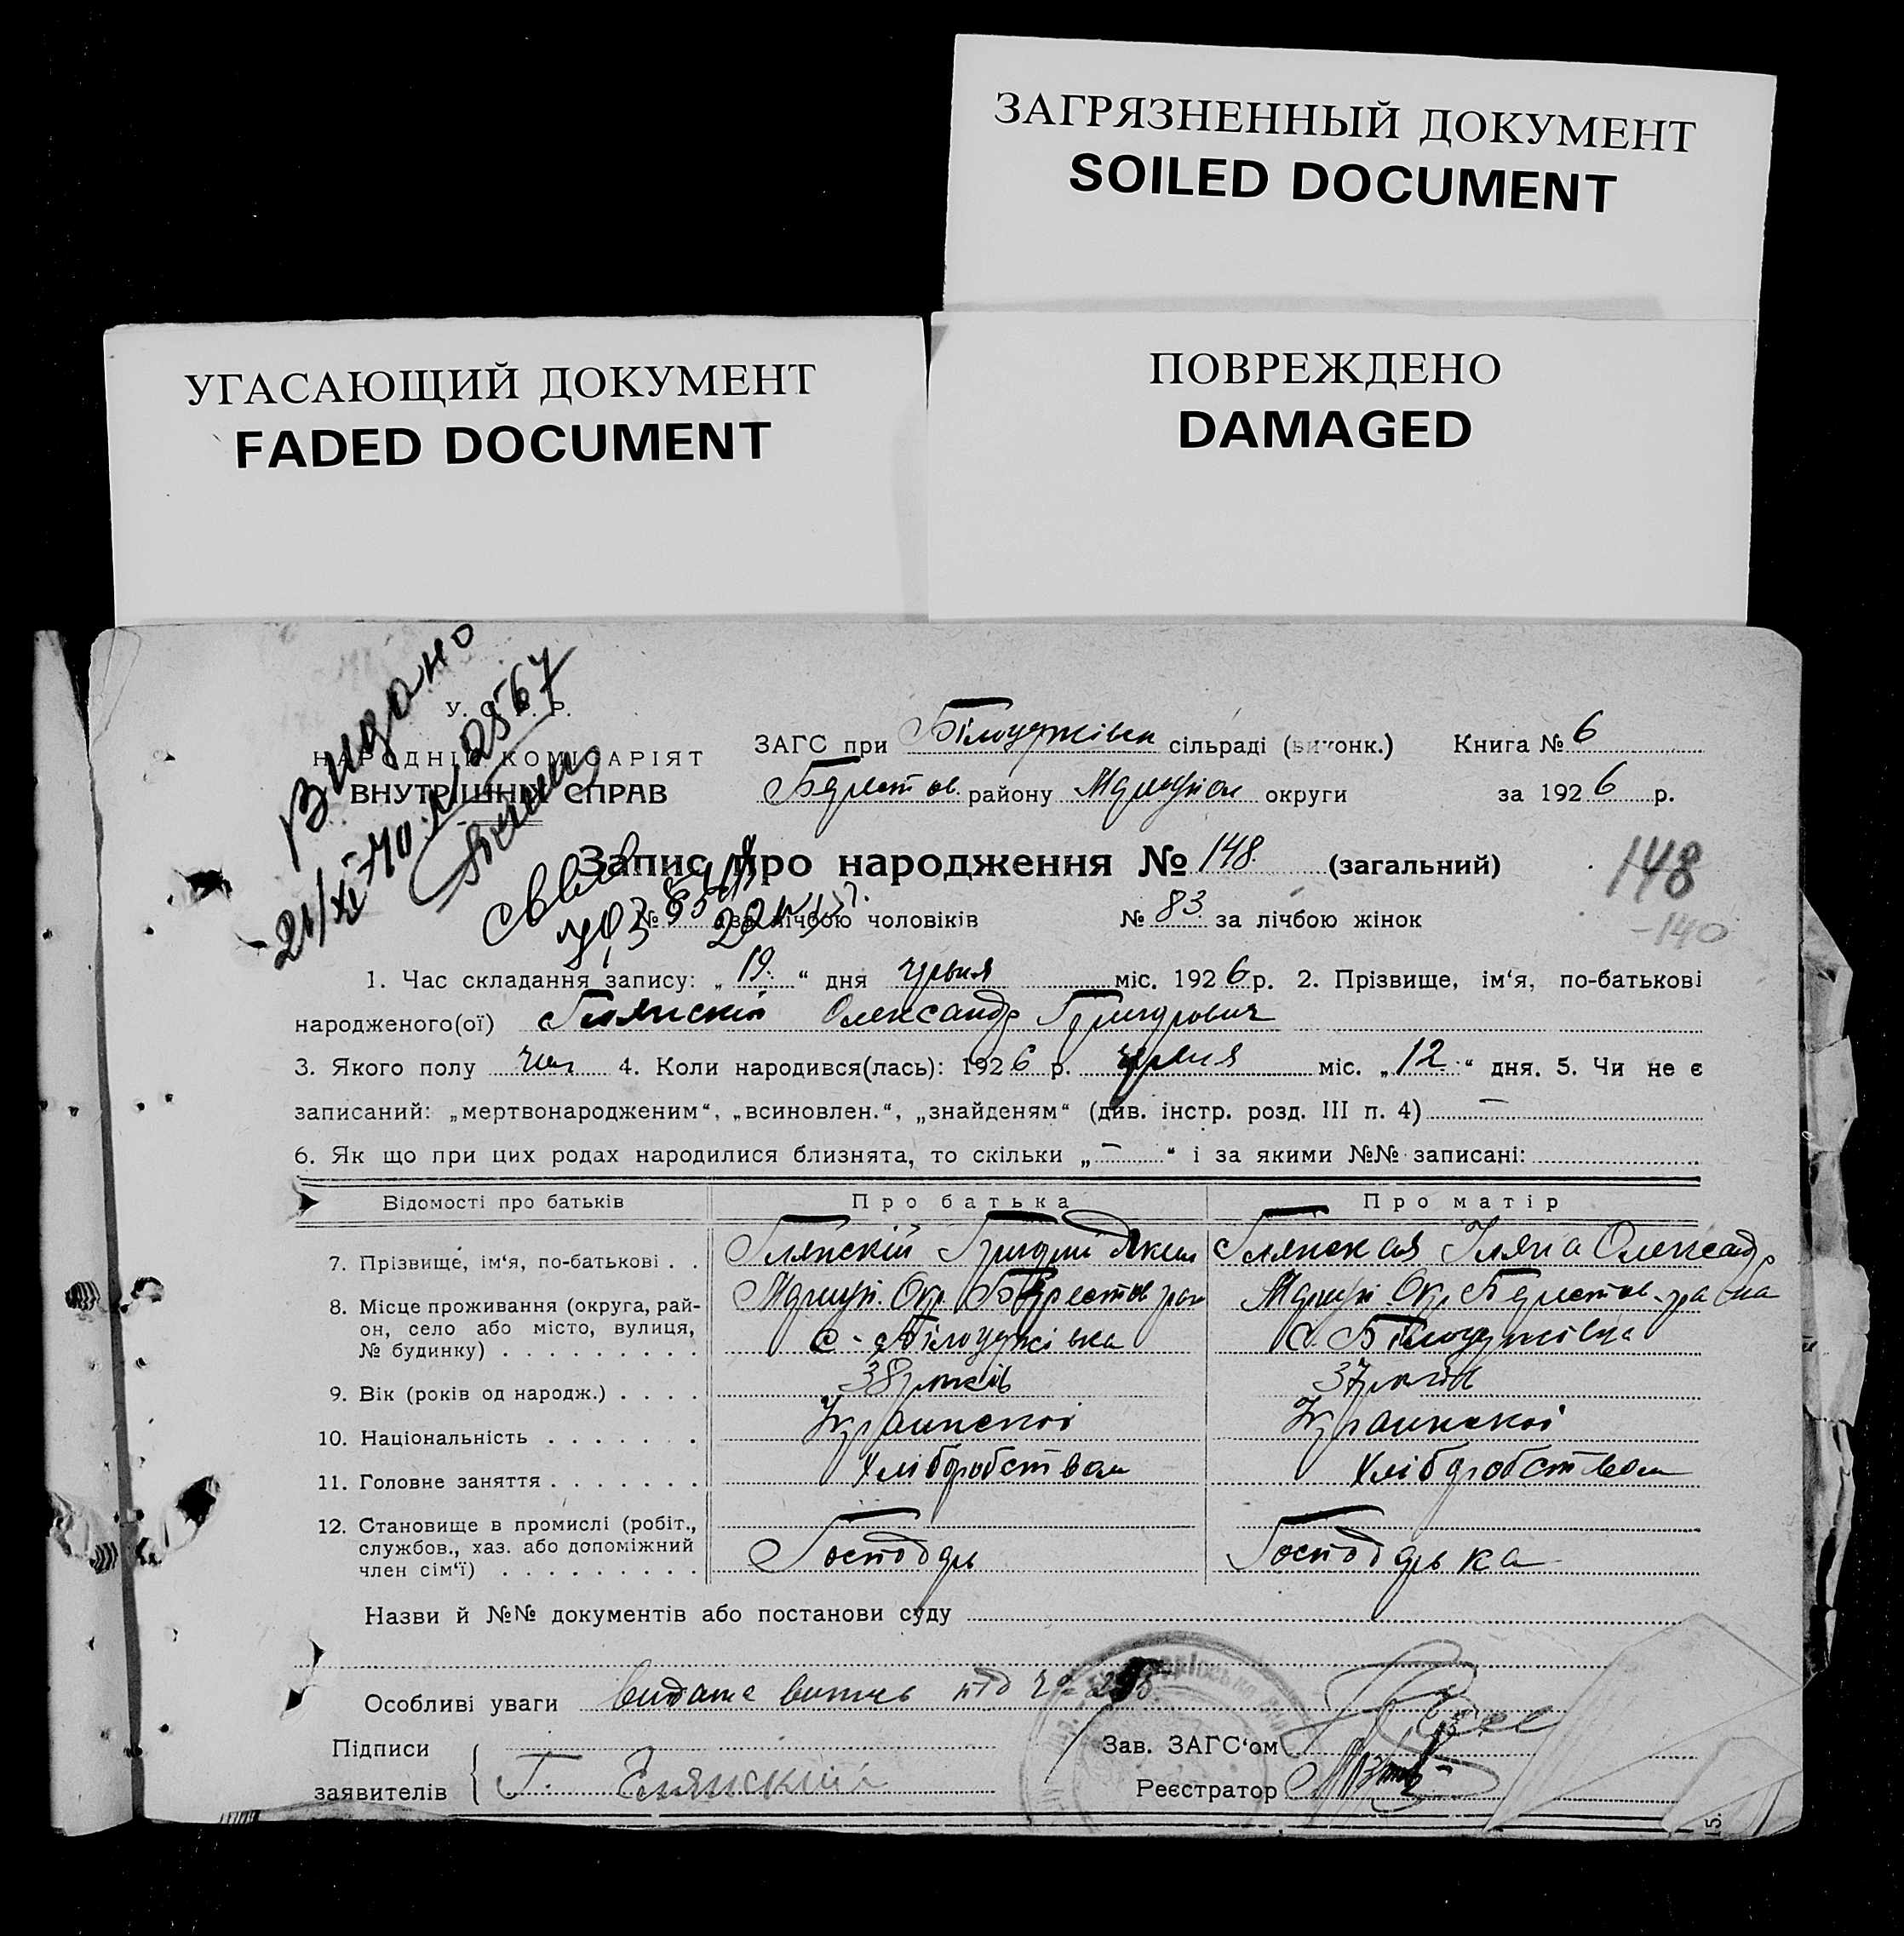 ЗАГРЯЗНЕННЫЙ ДОКУМЕНТ
SOILED DOCUMENT
УГАСАЮЩИЙ ДОКУМЕНТ
FADED DOCUMENT
ПОВРЕЖДЕНО
DAMAGED
Видано
У. С. Р. Р.
НАРОДНІЙ КОМІСАРІЯТ
ВНУТРІШНІХ СПРАВ
ЗАГС при Білоцерківка сільраді (виконк.) Книга № 6
Берестов. району Маріупол округи за 1926 р.
Запис про народження № 148 (загальний)
148
-140
№ за лічбою чоловіків № 83 за лічбою жінок
1. Час складання запису: „ 19 “ дня червня міс. 1926 р. 2. Прізвище, ім‘я, по-батькові
народженого(ої) Глянскій Олександр Григорович
3. Якого полу чол 4. Коли народився(лась): 1926 р. червня міс. „ 12 “ дня. 5. Чи не є
записаний: „мертвонародженим“, „всиновлен.“, „знайденям“ (див. інстр. розд. III п. 4) —
6. Як що при цих родах народилися близнята, то скільки „ — “ і за якими №№ записані:
Відомості про батьків Про батька Про матір
7. Прізвище, ім‘я, по-батькові . . Глянскій Григорий Глянская Уляна Олександр
8. Місце проживання (округа, рай- Маріуп. Окр. Берестов рай Маріуп. Окр. Берестов. района
он, село або місто, вулиця, с. Білоцерківка с. Білоцерківка
№ будинку) . . . . . . . . .
9. Вік (років од народж.) . . . . 38 років 37 років
10. Національність . . . . . . . Украинскоі Украинскоі
11. Головне заняття . . . . . . . Хліборобством Хліборобством
12. Становище в промислі (робіт.,
службов., хаз. або допоміжний Господарь Господарька
член сім‘ї) . . . . . . . . .
Назви й №№ документів або постанови суду
Особливі уваги видана витись під
Підписи Зав. ЗАГС‘ом
заявителів Г. Глянский Реєстратор
15.